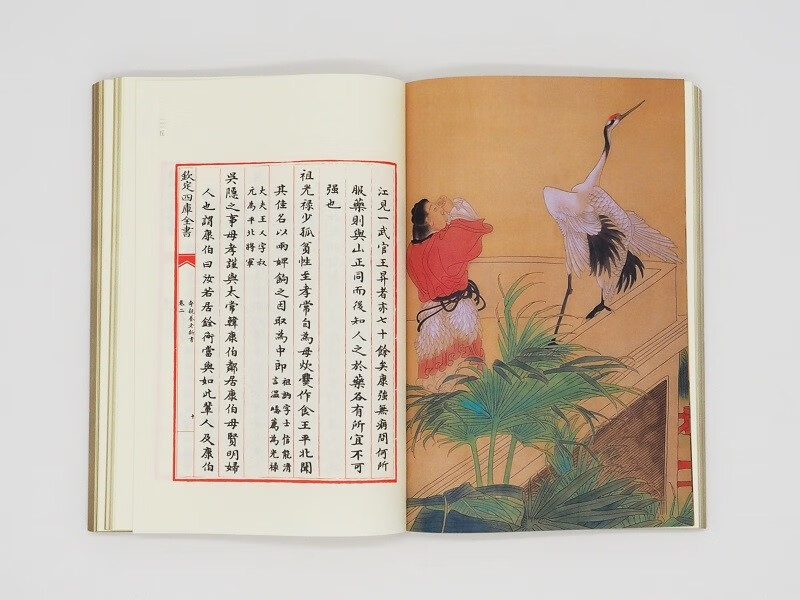 江見一武官王昇者亦七十餘矣康強無病問何所
服藥則與山正同而後知人之於藥各有所宜不可
强也
祖光祿少孤貧性至孝常自為母炊爨作食王平北聞
其佳名以兩婢餉之因取為中郎
祖訥字士信能清
言温嶠薦為光祿
大夫王人字叔
元為平北將軍
吳隱之事母孝謹與太常韓康伯鄰居康伯母賢明婦
人也謂康伯曰汝若居銓衡當與如此輩人及康伯
欽定四庫全書
壽親養老新書
卷二